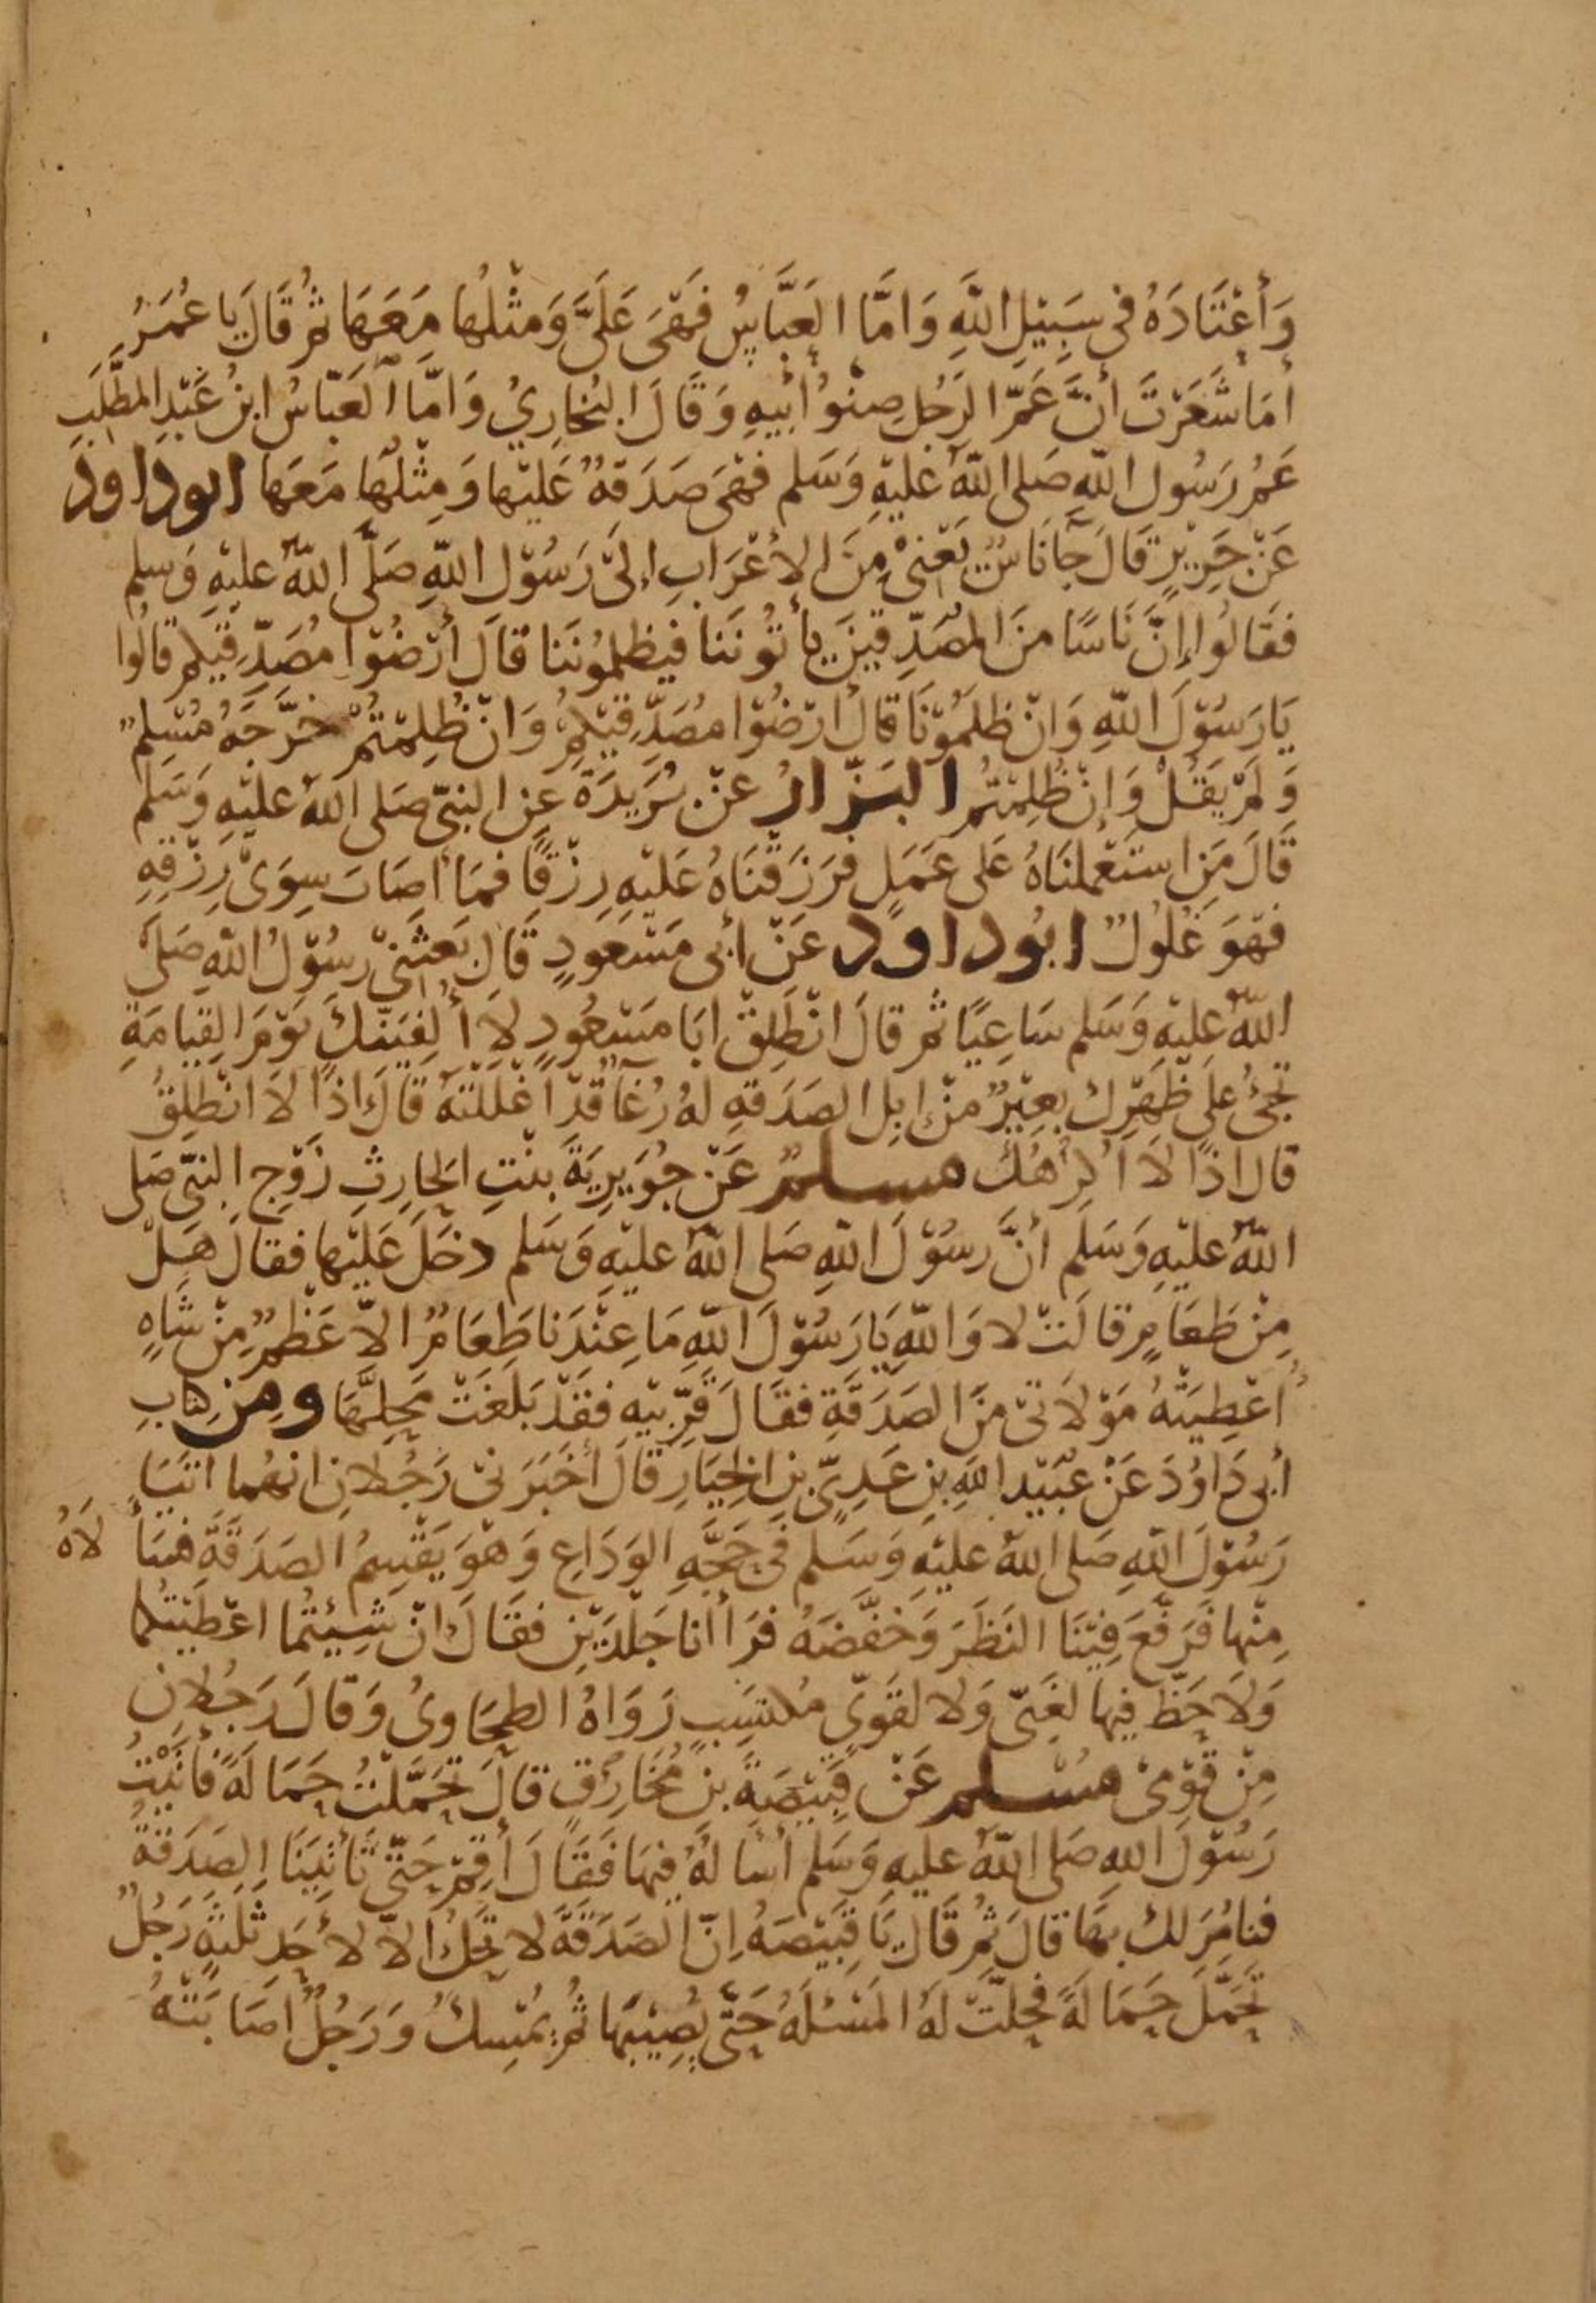 وَأَعْتَادَهُ فِي سَبِيْلِ اللّهِ وَامَّا العَبَّاسُ فَهْيَ عَلَيَّ وَمثْلُها مَعَهَا ثُمَّ قَالَ يا عُمَرُ
أمَا شَعَرْتَ أَنَّ عَمَّ الرَجُلِ صِنْوُ أبِيهِ وَقَالَ البُخارِيُ وَامَّا العَبّاسُ ابنُ عَبْدِ المطَّلِبِ
عَمُّ رَسُولِ اللّهِ صَلى اللّهُ عَليْهِ وَسَلم فهْيَ صَدَقَةٌ عَليْها وَمِثْلُها مَعَها ابوداود
عَنْ جَرِيْرٍ قَالَ جآ نَاسٌ يَعْنِيْ مِنَ الاعْرَابِ إلَى رَسُوْلِ اللّهِ صَلَّى اللّهُ عليْهِ وَسلم
فقَالُوا إِنَّ نَاسًا منَ المصَدِّقينَ يأتُونَنا فيظلِمُونَنا قالَ أرْضُوْا مُصَدِّقيكم قالُوا
يَارَسُوْلَ اللّهِ وَانْ ظلَمُوْنَا قالَ ارْضُوْا مصَدِّقيْكُمْ وَانْ ظُلِمْتُمْ خرَّجَهُ مُسْلِمٌ
وَلَمْ يَقُلْ وَإِنْ ظُلِمْتُمْ البَزّارُ عَنْ بُرَيْدَةَ عَنِ النبيّ صَلى اللهُ عليْهِ وَسَلم
قَالَ مَنِ اسْتَعْملنَاهُ عَلى عَمَلٍ فرَزَقْنَاهُ عَلَيْهِ رِزْقًا فمَا أصَابَ سِوَىْ رِزْقِهِ
فهْوَ غُلُولٌ ابوُداود عَنْ أبى مَسْعُودٍ قَالَ بَعَثَنِيْ رسُوْلُ اللّهِ صَلَّى
اللّهُ عليْهِ وَسَلم سَاعِيًا ثُم قالَ انْطَلِقْ ابَا مَسْعُودٍ لا أُلفِيَنَّكَ يَوْمَ القِيامَةِ
تجيْئُ علَى ظَهْرِكَ بعِيْرٌ منْ إبِلِ الصَدَقةِ لهُ رُغَآ قَدْ اَغْلَلْتَهُ قَالَ اذًا لاَ انْطَلِقُ
قال اذًا لاَ اُكْرِهُكَ مسلمٌ عَنْ جُوَيْرِيَةَ بنْتِ الحارِثِ زَوْجِ النبّى صَلى
اللّهُ عليْهِ وَسَلم أنَّ رسُوْلَ اللّهِ صَلى اللّهُ عليْهِ وَسَلم دخَلَ عَلَيْها فقالَ هَلْ
مِنْ طَعَامٍ قالَتْ لا وَاللّهِ يَا رَسُوْلَ اللّهِ مَا عِنْدَنا طَعَامٌ الاّ عَظْمٌ مِنْ شَاةٍ
اُعْطِيَتْهُ مَوْلاَتِى منَ الصَدَقَةِ فقَالَ قَرِّبيْهِ فقَدْ بَلَغَتْ مَحِلَّهَا ومِن كتابِ
أبى دَاوُدَ عَنْ عُبَيْدِ اللهِ بنِ عَدِيّ بنِ الخِيَارِ قَالَ أخْبَرَنى رَجُلانِ انهُما اتَيَا
رَسُوْلَ اللّهِ صَلى اللهُ عليْهِ وَسَلم فى حَجَّةِ الوَدَاعِ وَهْوَ يَقْسِمُ الصَدَقَةَ فسَأَلاَهُ
مِنْها فَرَفَعَ فيْنَا النَظَرَ وَخَفَّضَهُ فرَأانا جَلْدَيْنِ فقَالَ انْ شِيْتُما اعْطَيْتُكما
وَلاَ حَظّ فيها لغَنّى وَلا لقَوِىّ مكتسِبٍ رَوَاهُ الطحَاوىُ وَقالَ رَجُلانِ
مِنْ قَوْمِىْ مُسلم عَنْ قَبيْصَةَ بنِ مُخَارِقٍ قالَ تَحَمَّلْتُ حَمَالَةً فأتَيْتُ
رَسُوْلَ اللهِ صَلى اللّهُ عليهِ وَسَلم أسْالهُ فيْهَا فَقَالَ أقِمْ حَتّى تَأتِيَنَا الصَدَقةُ
فنامُرَ لكَ بهَا قالَ ثمّ قَالَ يَا قَبيْصَةُ اِنّ الصَدَقَةَ لا تَحِلُّ الاّ لاحَدِ ثَلثَةٍ رَجُلٌ
تَحمَّلَ حَمَالةً فحلّتْ لَهُ المَسْئلَةُ حَتّى يُصِيْبَهَا ثُمّ يُمْسِكُ وَرَجُلٌ اصَابَتْهُ